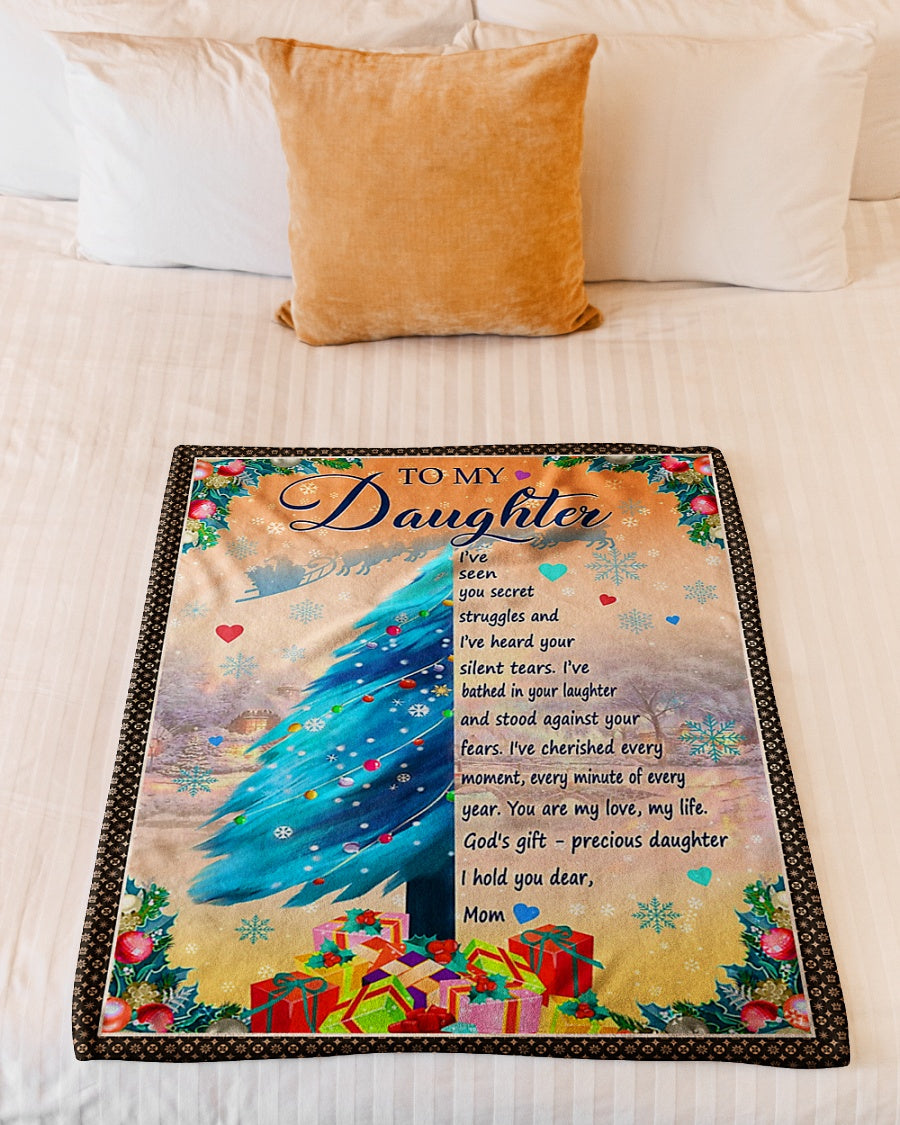 TO MY
Daughter
I've
seen
you secret
struggles and
I've heard your
silent tears. I've
bathed in your laughter
and stood against your
fears. I've cherished every
moment, every minute of every
year. You are my love, my life.
God's gift - precious daughter
I hold you dear,
Mom